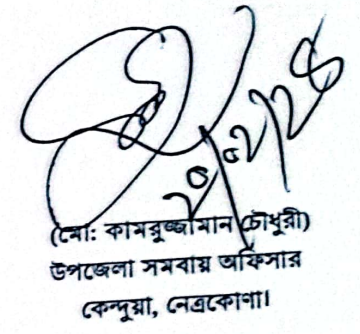 (মো: কামরুজ্জামান চৌধুরী)
উপজেলা সমবায় অফিসার
কেন্দুয়া, নেত্রকোণা।